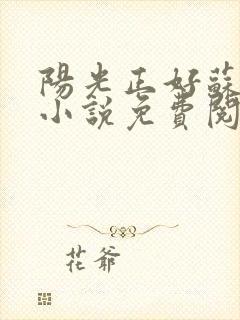 陽光正好蘇
小說免費閱
花爺